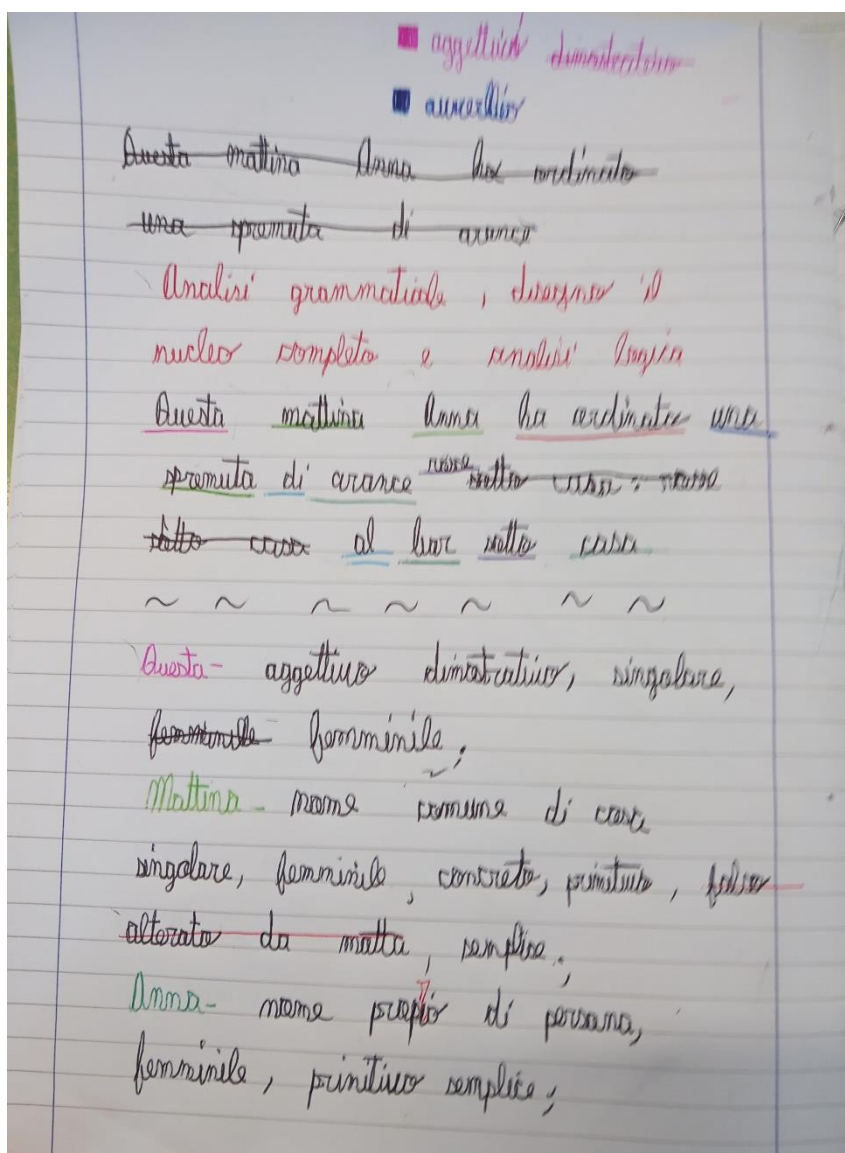 aggettivo dimostrativo
Questa mattina Anna ha ordinato
una spremuta di arance
Analisi grammaticale, disegno il
nucleo completo e analisi logica
Questa mattina Anna ha ordinato una
spremuta di arance sotto casa
sotto casa al bar sotto casa
~ ~ ~ ~ ~ ~ ~
Questa- aggettivo dimostrativo, singolare,
femminile femminile;
Mattina- nome comune di cosa
singolare, femminile, concreto, primitivo, falso
alterato da matta, semplice;
Anna- nome proprio di persona,
femminile, primitivo semplice;